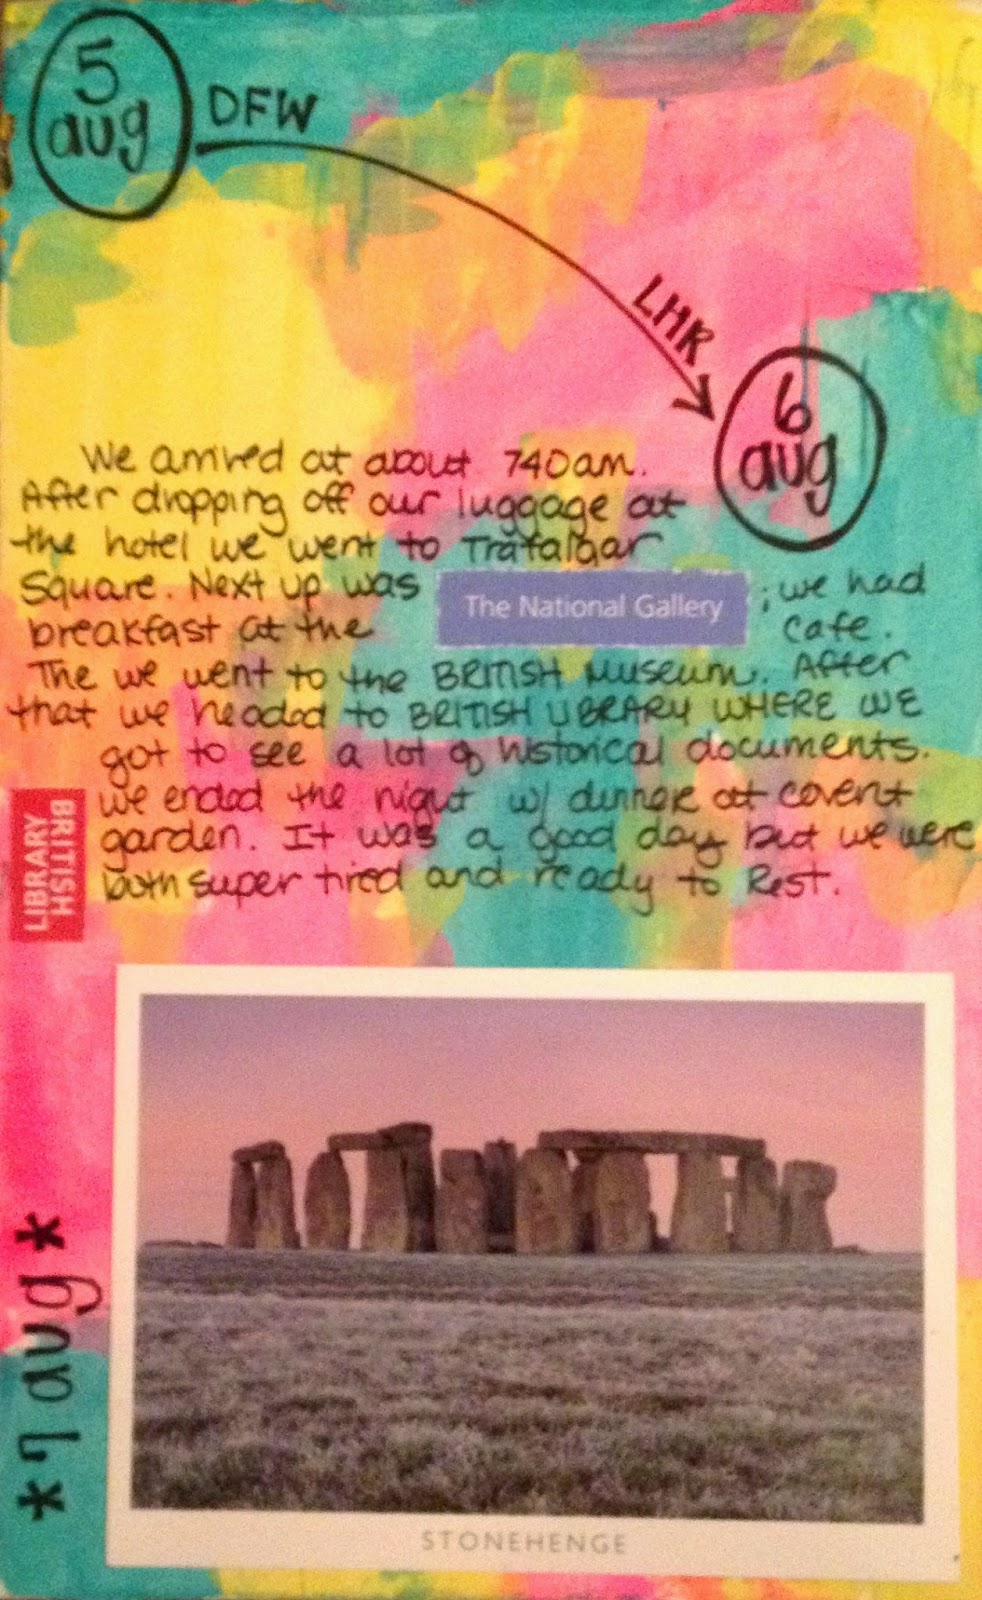 5
aug
DFW
LHR
6
aug
We arrived at about 740am.
After dropping off our luggage at
the hotel we went to Trafalgar
Square. Next up was The National Gallery ; we had
breakfast at the cafe.
The we went to the BRITISH Museum. After
that we headed to BRITISH LIBRARY WHERE WE
got to see a lot of historical documents.
We ended the night w/ dinner at covent
garden. It was a good day but we were
both super tired and ready to Rest.
BRITISH
LIBRARY
*7 aug*
STONEHENGE